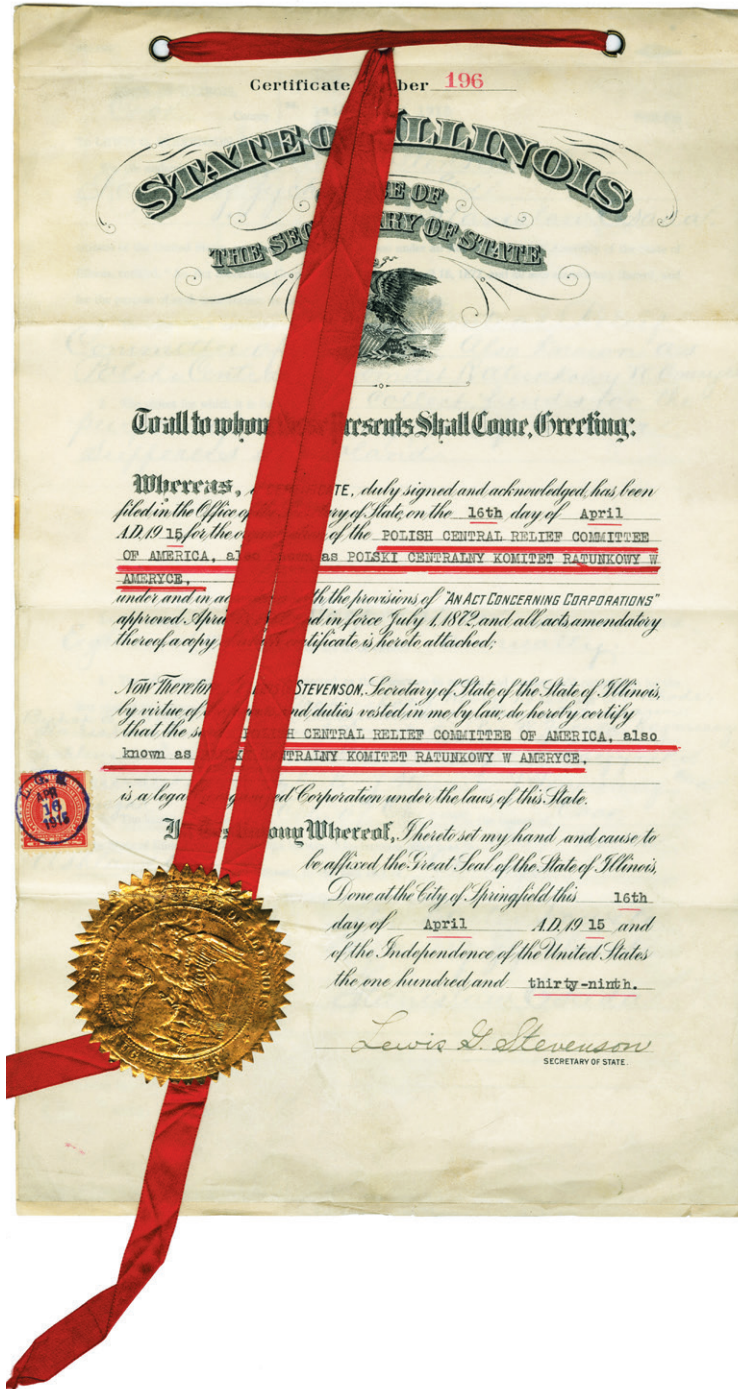 Certificate ber 196
STATE OF ILLINOIS
OF
THE SEC RY OF STATE
To all to whom Presents Shall Come, Greeting:
Whereas, duly signed and acknowledged, has been
filed in the Office of of State, on the 16th day of April
A.D. 19 15 for the of the POLISH CENTRAL RELIEF COMMITTEE
OF AMERICA, also known as POLSKI CENTRALNY KOMITET RATUNKOWY W
AMERYCE,
under and in with the provisions of "AN ACT CONCERNING CORPORATIONS"
approved April in force July 1, 1872, and all acts amendatory
thereof, a copy certificate is hereto attached;
Now Therefore STEVENSON, Secretary of State of the State of Illinois,
by virtue of and duties vested in me by law, do hereby certify
that the POLISH CENTRAL RELIEF COMMITTEE OF AMERICA, also
known as CENTRALNY KOMITET RATUNKOWY W AMERYCE,
is a legally organized Corporation under the laws of this State.
In Testimony Whereof, I hereto set my hand and cause to
be affixed the Great Seal of the State of Illinois,
Done at the City of Springfield this 16th
day of April A.D. 19 15 and
of the Independence of the United States
the one hundred and thirty-ninth.
Lewis G. Stevenson
SECRETARY OF STATE.
APR
16
1915